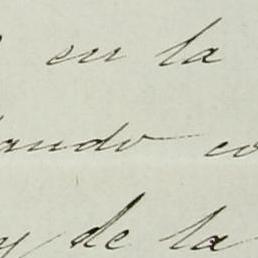 en la
ando co
y de la